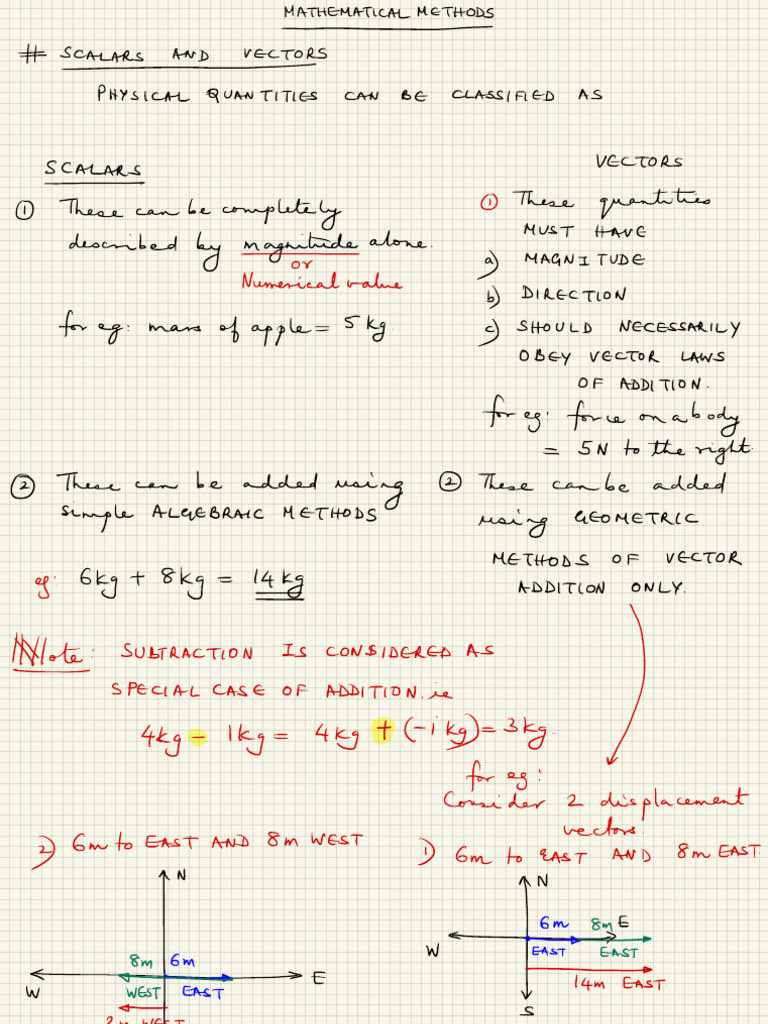 MATHEMATICAL METHODS
# SCALARS AND VECTORS
PHYSICAL QUANTITIES CAN BE CLASSIFIED AS
SCALARS
① These can be completely
described by magnitude alone.
or
Numerical value
for eg: mass of apple = 5 kg.
VECTORS
① These quantities
MUST HAVE
a) MAGNITUDE
b) DIRECTION
c) SHOULD NECESSARILY
OBEY VECTOR LAWS
OF ADDITION.
for eg: force on a body
= 5N to the right.
② These can be added using
simple ALGEBRAIC METHODS
eg: 6kg + 8kg = 14kg
② These can be added
using GEOMETRIC
METHODS OF VECTOR
ADDITION ONLY.
Note: SUBTRACTION IS CONSIDERED AS
SPECIAL CASE OF ADDITION. ie
4kg - 1kg = 4kg + (-1kg) = 3kg.
for eg:
Consider 2 displacement
vectors
1) 6m to EAST AND 8m EAST
N
6m 8m E
W
EAST EAST
14m EAST
S
2) 6m to EAST AND 8m WEST
N
8m 6m
E
W WEST EAST
2m WEST